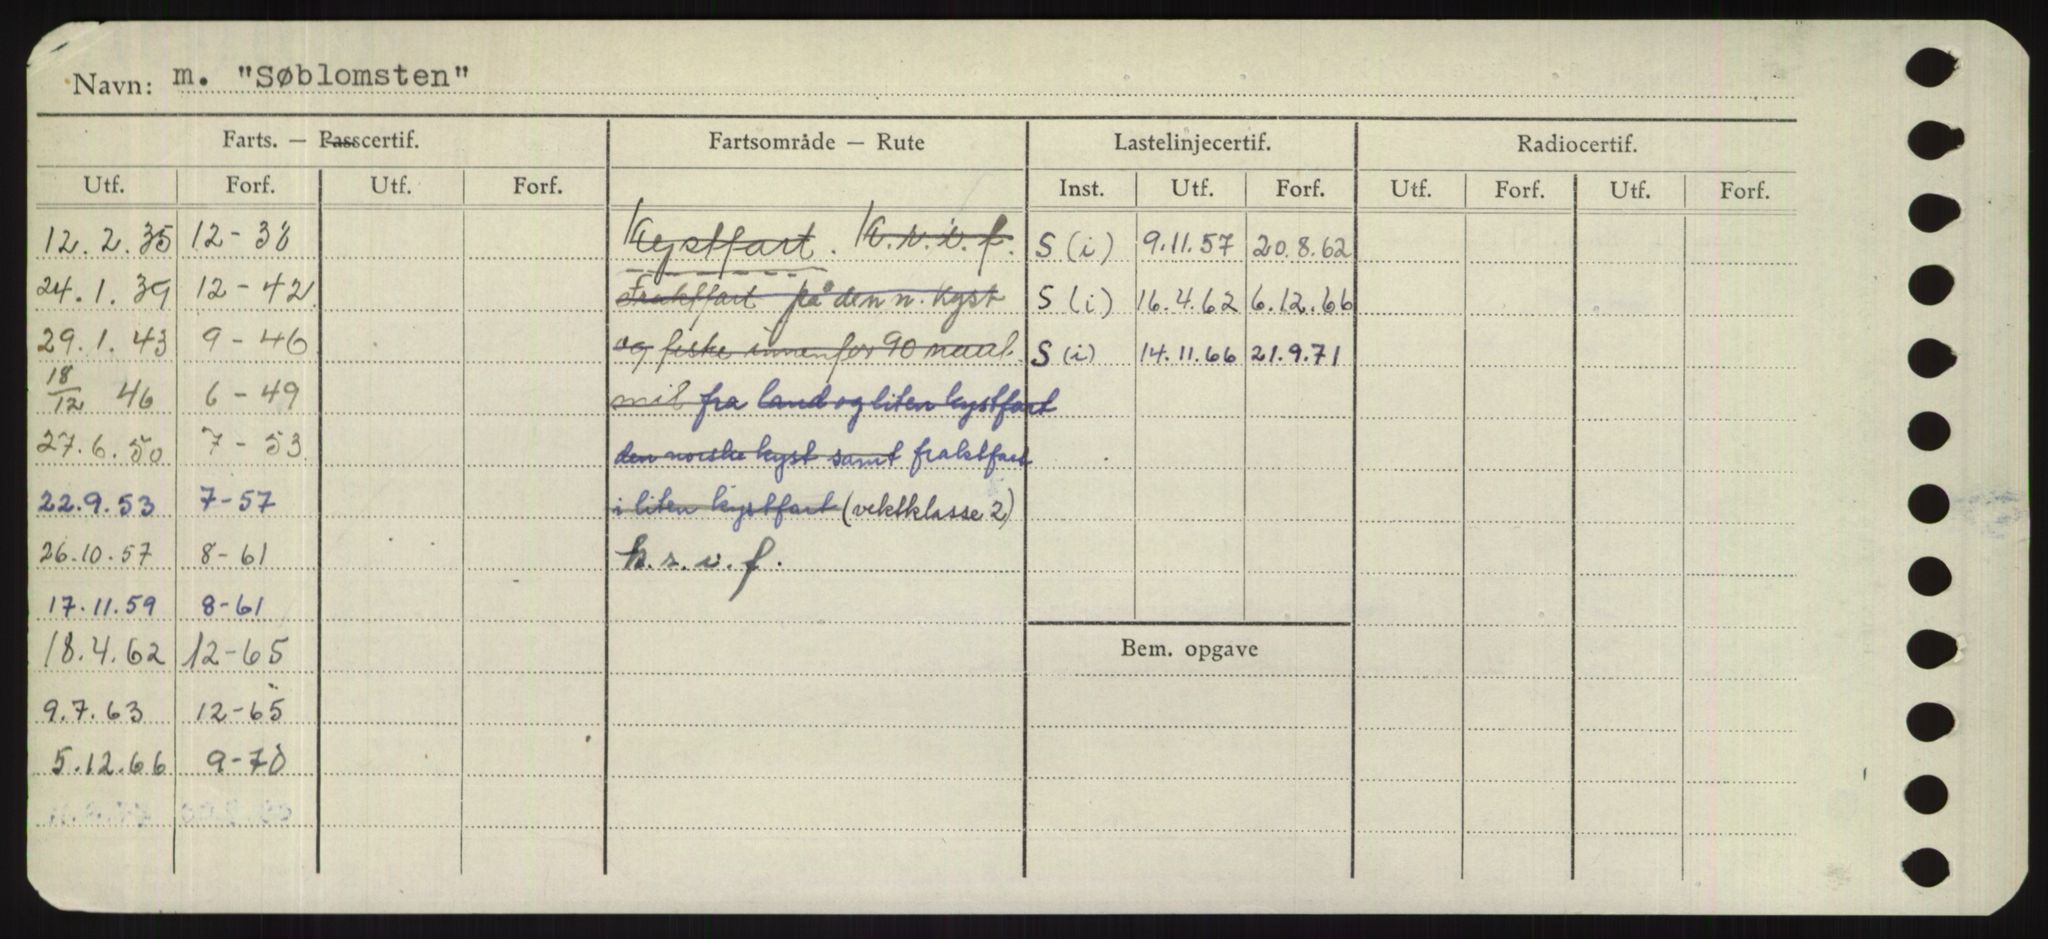 Navn: m. "Søblomsten"
Farts. — Passcertif. Fartsområde — Rute Lastelinjecertif. Radiocertif.
Utf. Forf. Utf. Forf. Inst. Utf. Forf. Utf. Forf. Utf. Forf.
12.2.35 12-38 Kystfart. K.r.v.f. S (i) 9.11.57 20.8.62
24.1.39 12-42 Fraktfart på den n. kyst S (i) 16.4.62 6.12.66
29.1.43 9-46 og fiske innenfor 90 naut. S (i) 14.11.66 21.9.71
18/12 46 6-49 mil fra land og liten kystfart
27.6.50 7-53 den norske kyst samt fraktfart
22.9.53 7-57 i liten kystfart (vektklasse 2)
26.10.57 8-61 k.r.v.f.
17.11.59 8-61
18.4.62 12-65 Bem. opgave
9.7.63 12-65
5.12.66 9-70